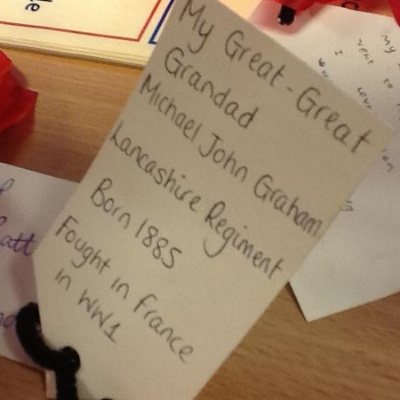 My Great-Great
Grandad
Michael John Graham
Lancashire Regiment
Born 1885
Fought in France
in WW1